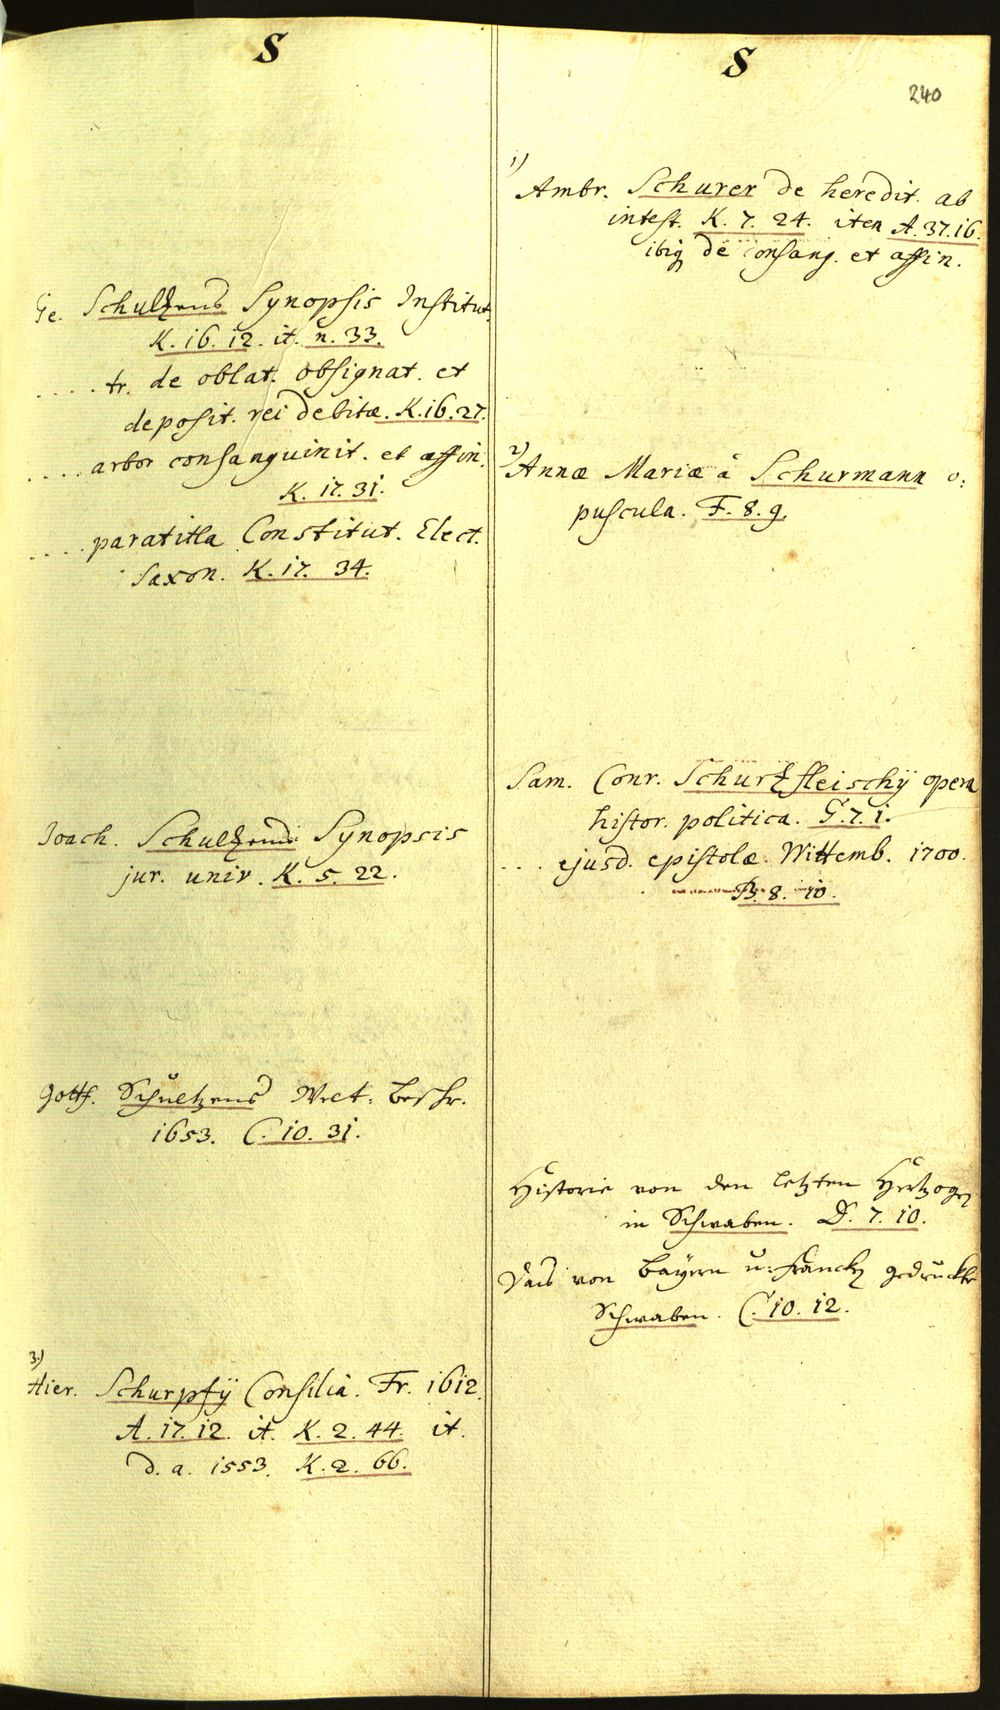 S
Ge. Schultzens Synopsis Institut.
K. 16. 12. it. n. 33.
.... tr. de oblat. obsignat. et
deposit. rei debitæ. K. 16. 27.
.... arbor consanguinit. et affin.
K. 17. 31.
.... paratitla Constitut. Elect.
Saxon. K. 17. 34.
Joach. Schultzens Synopsis
jur. univ. K. 5. 22.
Gottf. Schultzens Welt-beschr.
1653. C. 10. 31.
3.)
Hier. Schurpfÿ Consilia. Fr. 1612.
A. 17. 12. it. K. 2. 44. it.
d. a. 1553. K. 2. 66.
S
240
1)
Ambr. Schurer de heredit. ab
intest. K. 7. 24. item A. 37. 16.
ibiq de consang. et affin.
2)
Annæ Mariæ â Schurmann o:
puscula. F. 8. 9.
Sam. Conr. Schurtzfleischÿ opera
histor. politica. G. 7. 1.
... ejusd. epistolæ. Wittemb. 1700.
B. 8. 10.
Historie von den letzten Hertzogen
in Schwaben. D. 7. 10.
Das von Bayern u: Franckr gedruckte
Schwaben. C. 10. 12.